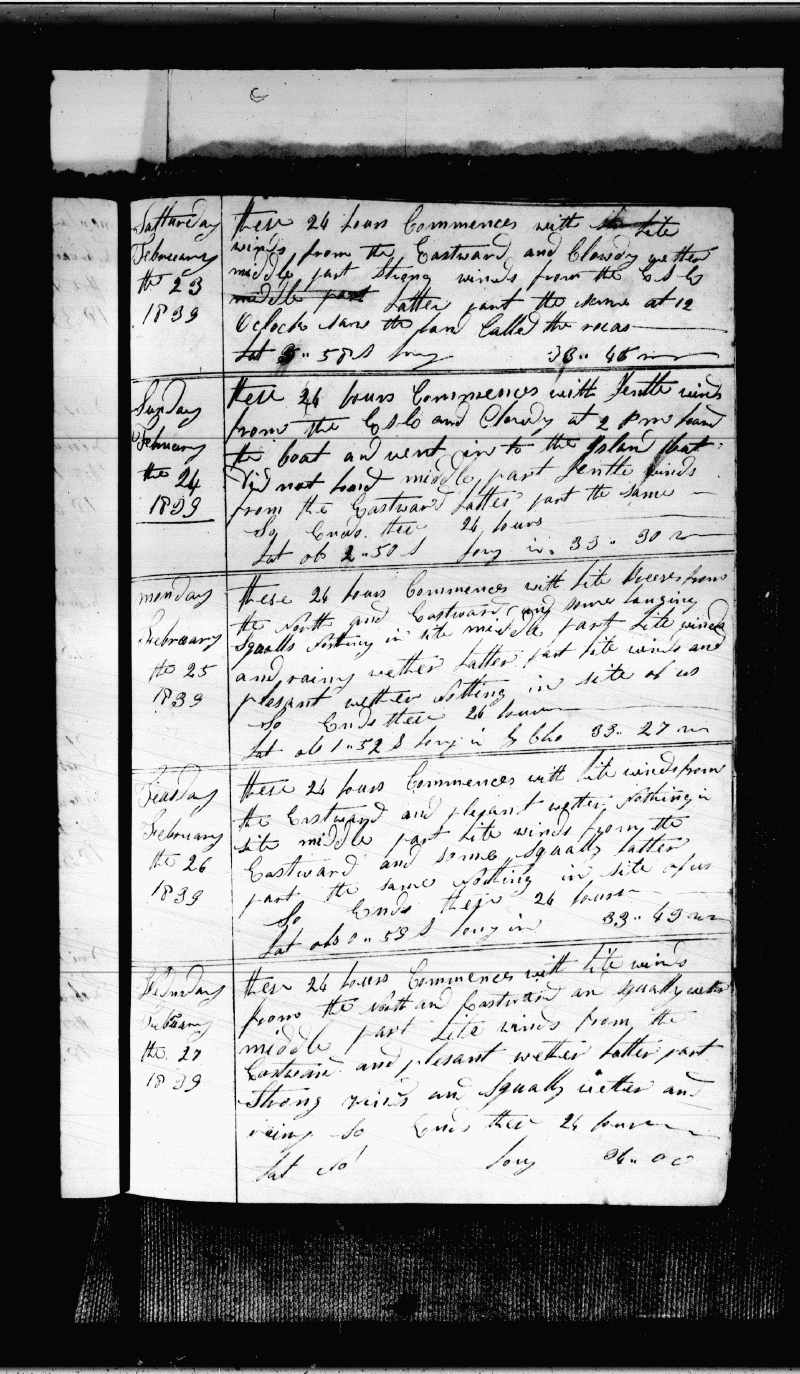 Satturday
February
the 23
1839
these 24 hours Commences with lite
winds from the Eastward and Clowdy wether
middle part strong winds from the E S E
middle part Latter part the same at 12
Oclock saw the land Called the rocas
Lat 3.. 58 S Long 33.. 45 w
Sunday
February
the 24
1839
these 24 hours Commences with Jentle winds
from the E S E and Clowdy at 2 Pm
the boat and went in to the Island
Did not land middle part Jentle winds
from the Eastward Latter part the same
So Ends these 24 hours
Lat ob 2.. 50 S Long in 33.. 30 w
monday
February
the 25
1839
these 24 hours Commences with lite breeses from
the North and Eastward and some
squalls Nothing in site middle part lite winds
and rainy wether Latter part lite winds and
plesant wether Nothing in site of us
So Ends these 24 hours
Lat ob 1.. 52 S Long in by Chro 33.. 27 w
Teusday
February
the 26
1839
these 24 hours Commences with lite winds from
the Eastward and plesant wether Nothing in
site middle part lite winds from the
Eastward and some squally Latter
part the same Nothing in site of us
So Ends these 24 hours
Lat ob 0.. 53 S Long in 33.. 43 w
Wednsday
February
the 27
1839
these 24 hours Commences with lite winds
from the North and Eastward and squally wether
middle part Lite winds from the
Eastward and plesant wether Latter part
Strong winds and Squally wether and
rainy So Ends these 24 hours
Lat No Long 34.. 00